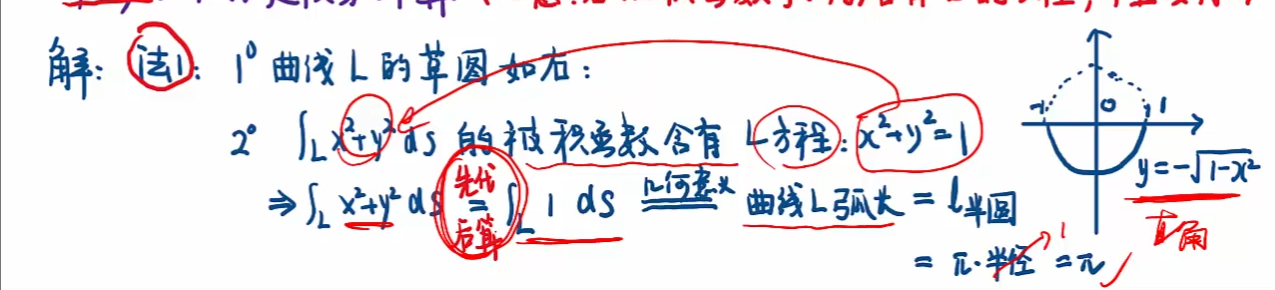 解：法1：1° 曲线L的草图如右：
2° ∫_L x²+y² ds 的被积函数含有 L方程：x²+y²=1
⇒ ∫_L x²+y² ds = ∫_L 1 ds 几何意义 曲线L弧长 = l半圆
先代
后算
= π·半径 = π
1
-1 0 1
y=-√(1-x²)